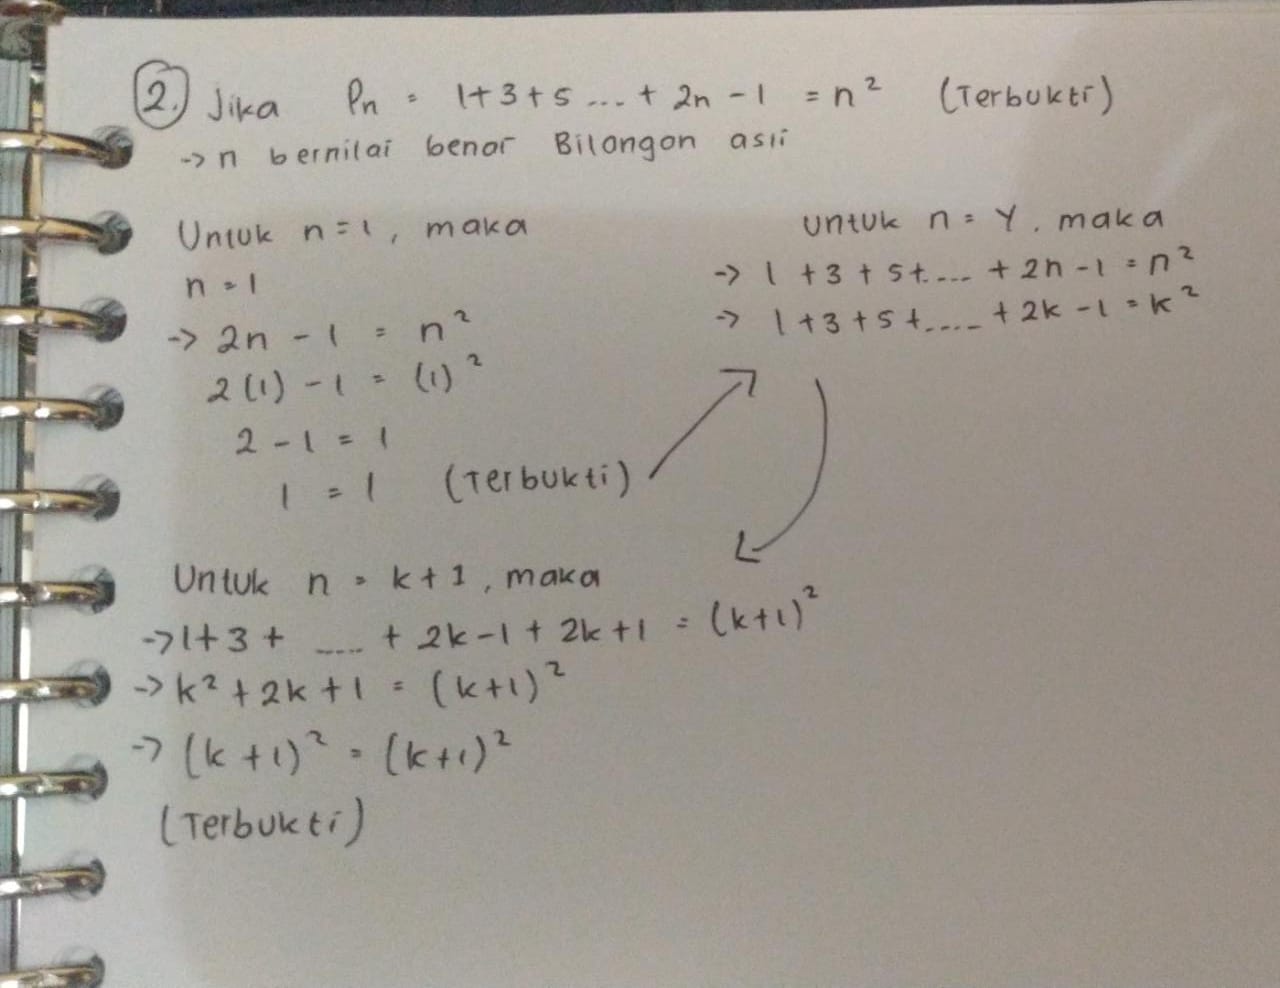 2. Jika Pn = 1+3+5 ... + 2n - 1 = n² (Terbukti)
-> n bernilai benar Bilangan asli
Untuk n=1, maka
n = 1
-> 2n - 1 = n²
2(1) - 1 = (1)²
2 - 1 = 1
1 = 1 (Terbukti)
Untuk n = Y, maka
-> 1 + 3 + 5+.... + 2n - 1 = n²
-> 1+3+5+..... + 2k - 1 = k²
Untuk n = k+1, maka
-> 1+3+ ..... + 2k-1 + 2k+1 = (k+1)²
-> k² + 2k + 1 = (k+1)²
-> (k+1)² = (k+1)²
(Terbukti)